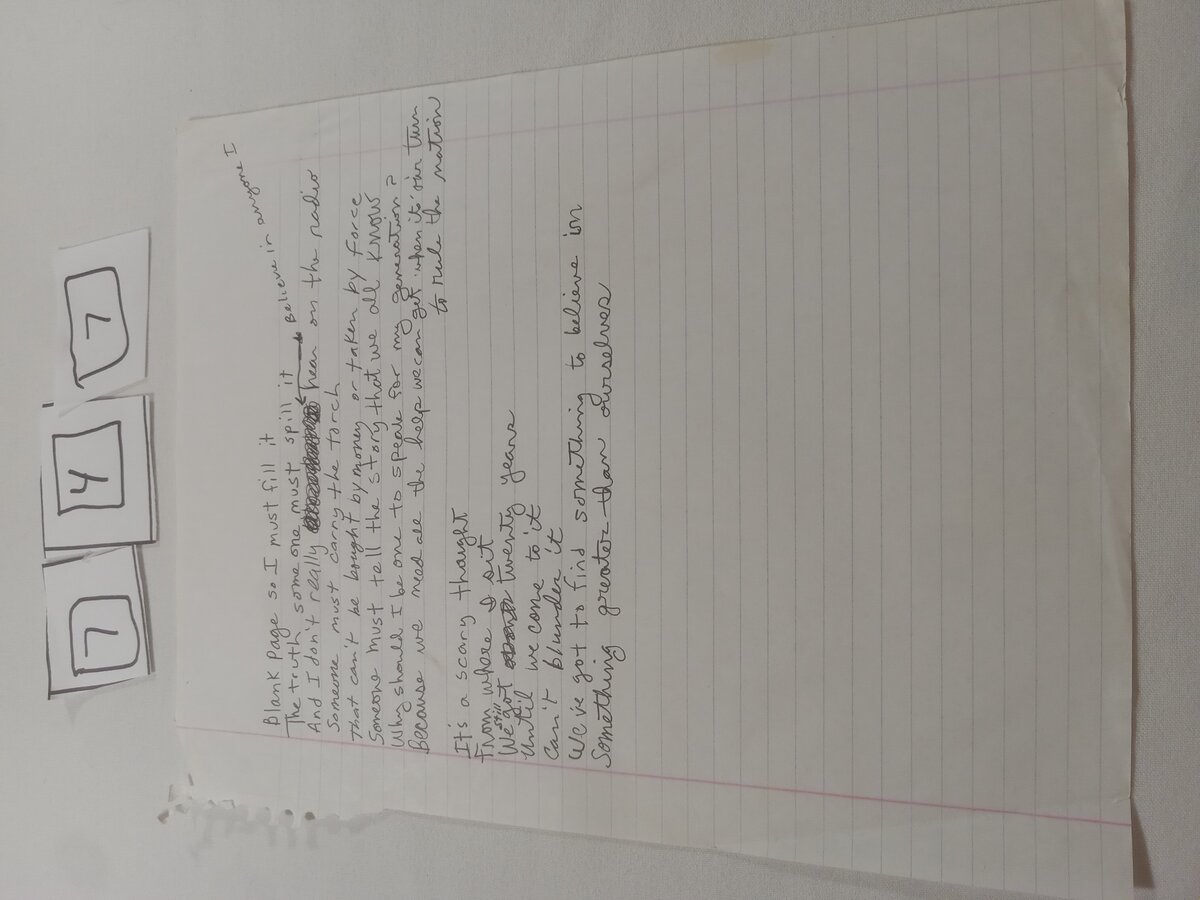 7 4 7
Blank Page so I must fill it
The truth some one must spill it
And I don't really believe in anyone I hear on the radio
Someone must carry the torch
That can't be bought by money or taken by force
Someone must tell the story that we all know
Why should I be one to speak for my generation?
Because we need all the help we can get when it's our turn
to rule the nation
It's a scary thought
From where I sit
We still got twenty years
Until we come to it
Can't blunder it
We've got to find something to believe in
Something greater than ourselves